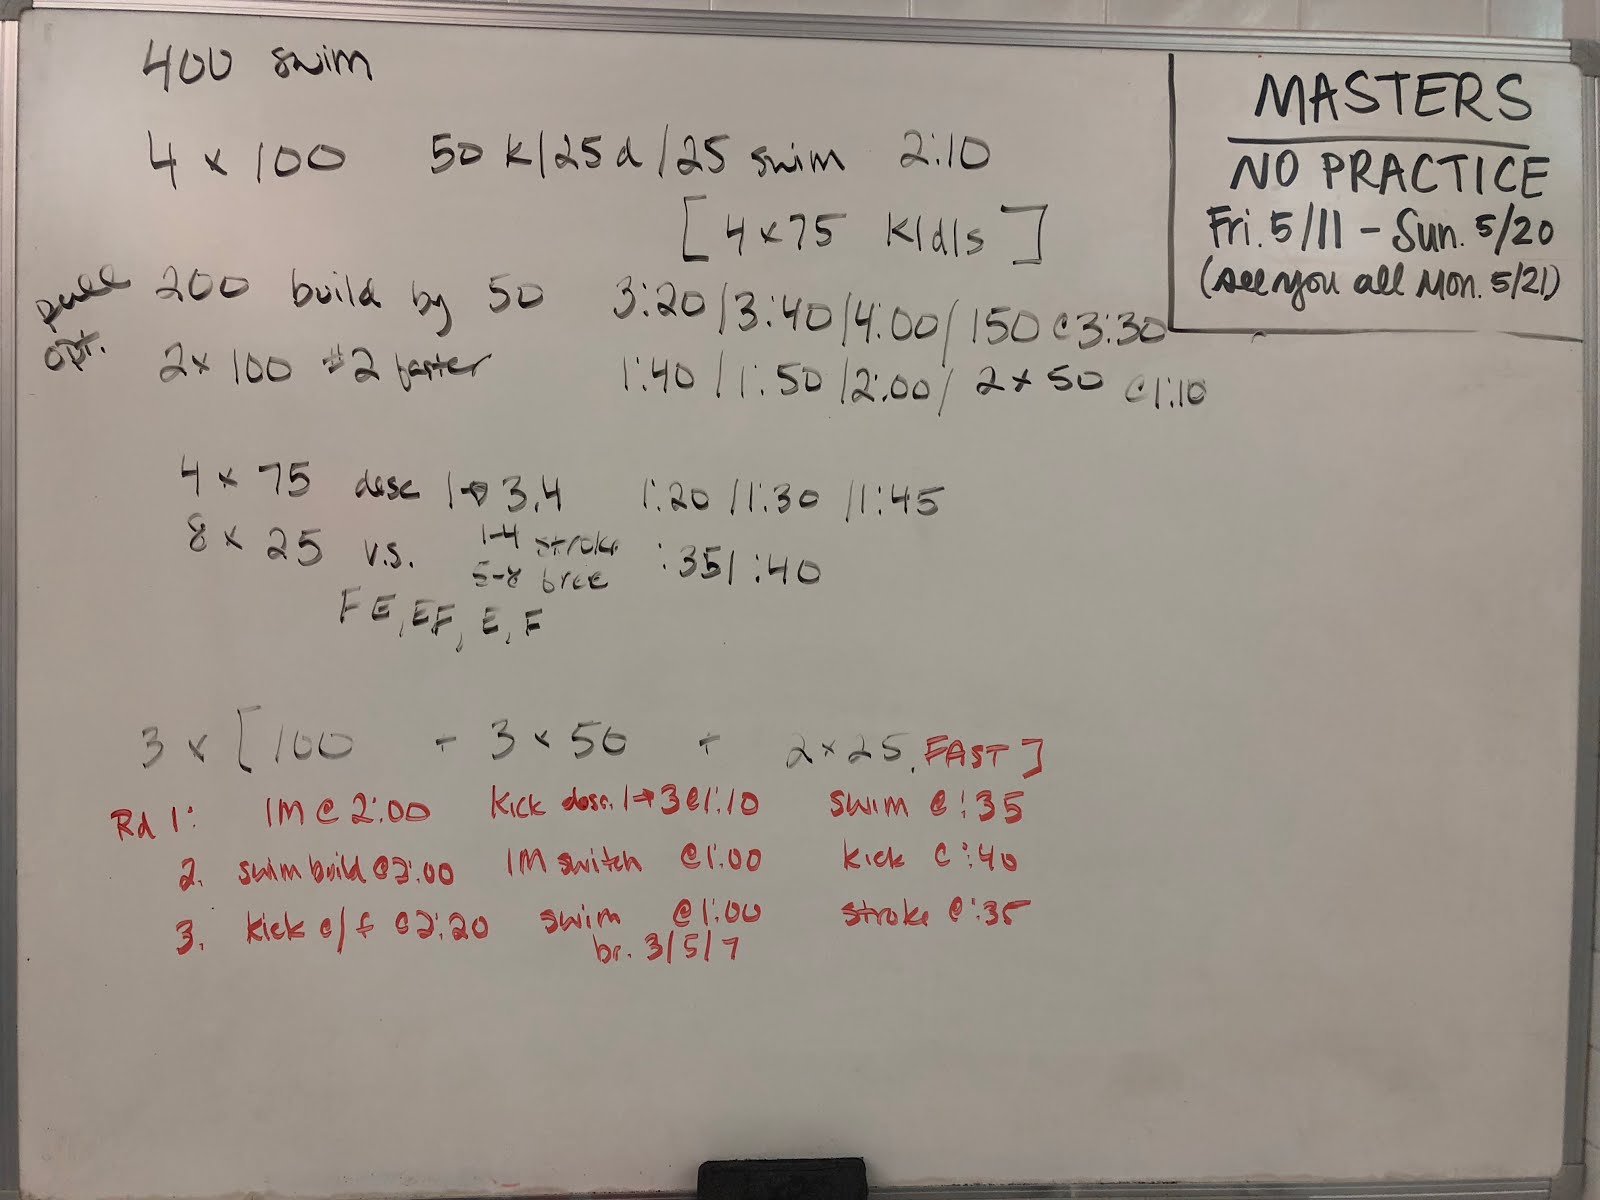 400 swim
4 x 100 50 K/25 d/25 swim 2:10
[4 x 75 K/d/s]
pull opt.
200 build by 50 3:20/3:40/4:00/150 @ 3:30
2 x 100 #2 faster 1:40/1:50/2:00/ 2 x 50 @ 1:10
4 x 75 desc 1→3,4 1:20/1:30/1:45
8 x 25 v.s. 1-4 stroke :35/:40
5-8 free
FE, EF, E, F
3 x [100 + 3 x 50 + 2 x 25, FAST]
Rd 1: IM @ 2:00 Kick desc. 1→3 @ 1:10 swim @ :35
2. swim build @ 2:00 IM switch @ 1:00 kick @ :40
3. kick e/f @ 2:20 swim @ 1:00 stroke @ :35
br. 3/5/7
MASTERS
NO PRACTICE
Fri. 5/11 - Sun. 5/20
(see you all Mon. 5/21)